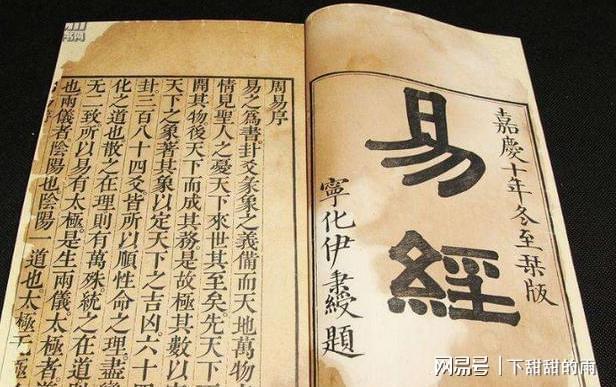 嘉慶十年冬至栞版
易經
寧化伊秉綬題
周易序
易之爲書卦爻彖象之義備而天地萬物
情見聖人之憂天下來世其至矣先天下
開其物後天下而成其務是故極其數以
天下之象著其象以定天下之吉凶六十四
卦三百八十四爻皆所以順性命之理盡
化之道也散之在理則有萬殊統之在道則
无二致所以易有太極是生兩儀太極
也兩儀者陰陽也陰陽一道也太極无極
网易号 | 下甜甜的雨